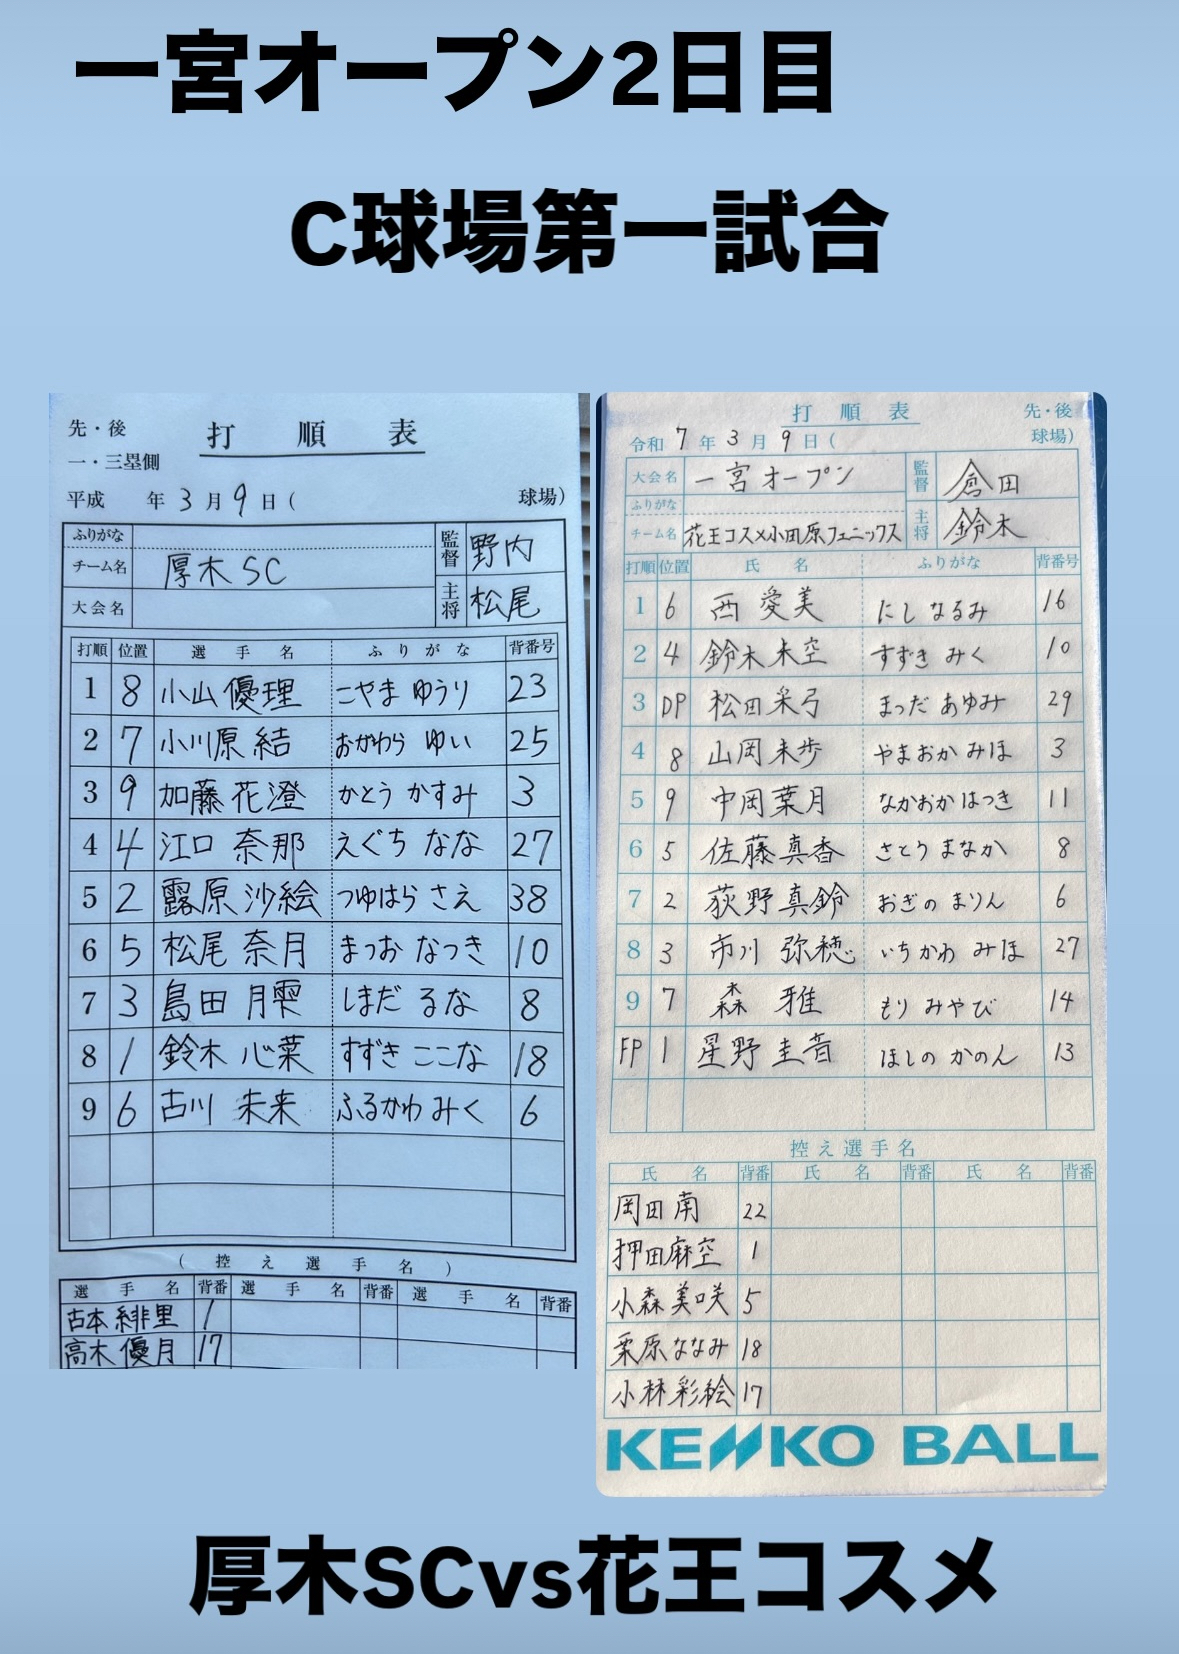 一宮オープン2日目
C球場第一試合
先・後
打順表
一・三塁側
平成 年 3 月 9 日 ( 球場)
ふりがな
チーム名 厚木SC
大会名
監督 野内
主将 松尾
打順 位置 選手名 ふりがな 背番号
1 8 小山優理 こやま ゆうり 23
2 7 小川原結 おがわら ゆい 25
3 9 加藤花澄 かとう かすみ 3
4 4 江口 奈那 えぐち なな 27
5 2 露原沙絵 つゆはら さえ 38
6 5 松尾 奈月 まつお なつき 10
7 3 島田 月雫 しまだ るな 8
8 1 鈴木 心菜 すずき ここな 18
9 6 古川 未来 ふるかわ みく 6
(控え選手名)
選手名 背番 選手名 背番 選手名 背番
古本 緋里 1
高木 優月 17
打順表
先・後
令和 7 年 3 月 9 日 ( 球場)
大会名 一宮オープン
ふりがな
チーム名 花王コスメ小田原フェニックス
監督 倉田
主将 鈴木
打順 位置 氏名 ふりがな 背番号
1 6 西 愛美 にし なるみ 16
2 4 鈴木未空 すずき みく 10
3 DP 松田采弓 まつだ あゆみ 29
4 8 山岡未歩 やまおか みほ 3
5 9 中岡葉月 なかおか はつき 11
6 5 佐藤真香 さとう まなか 8
7 2 荻野真鈴 おぎの まりん 6
8 3 市川 弥穂 いちかわ みほ 27
9 7 森 雅 もり みやび 14
FP 1 星野 圭音 ほしの かのん 13
控え選手名
氏名 背番 氏名 背番 氏名 背番
岡田南 22
押田麻空 1
小森美咲 5
栗原ななみ 18
小林彩絵 17
KENKO BALL
厚木SCvs花王コスメ